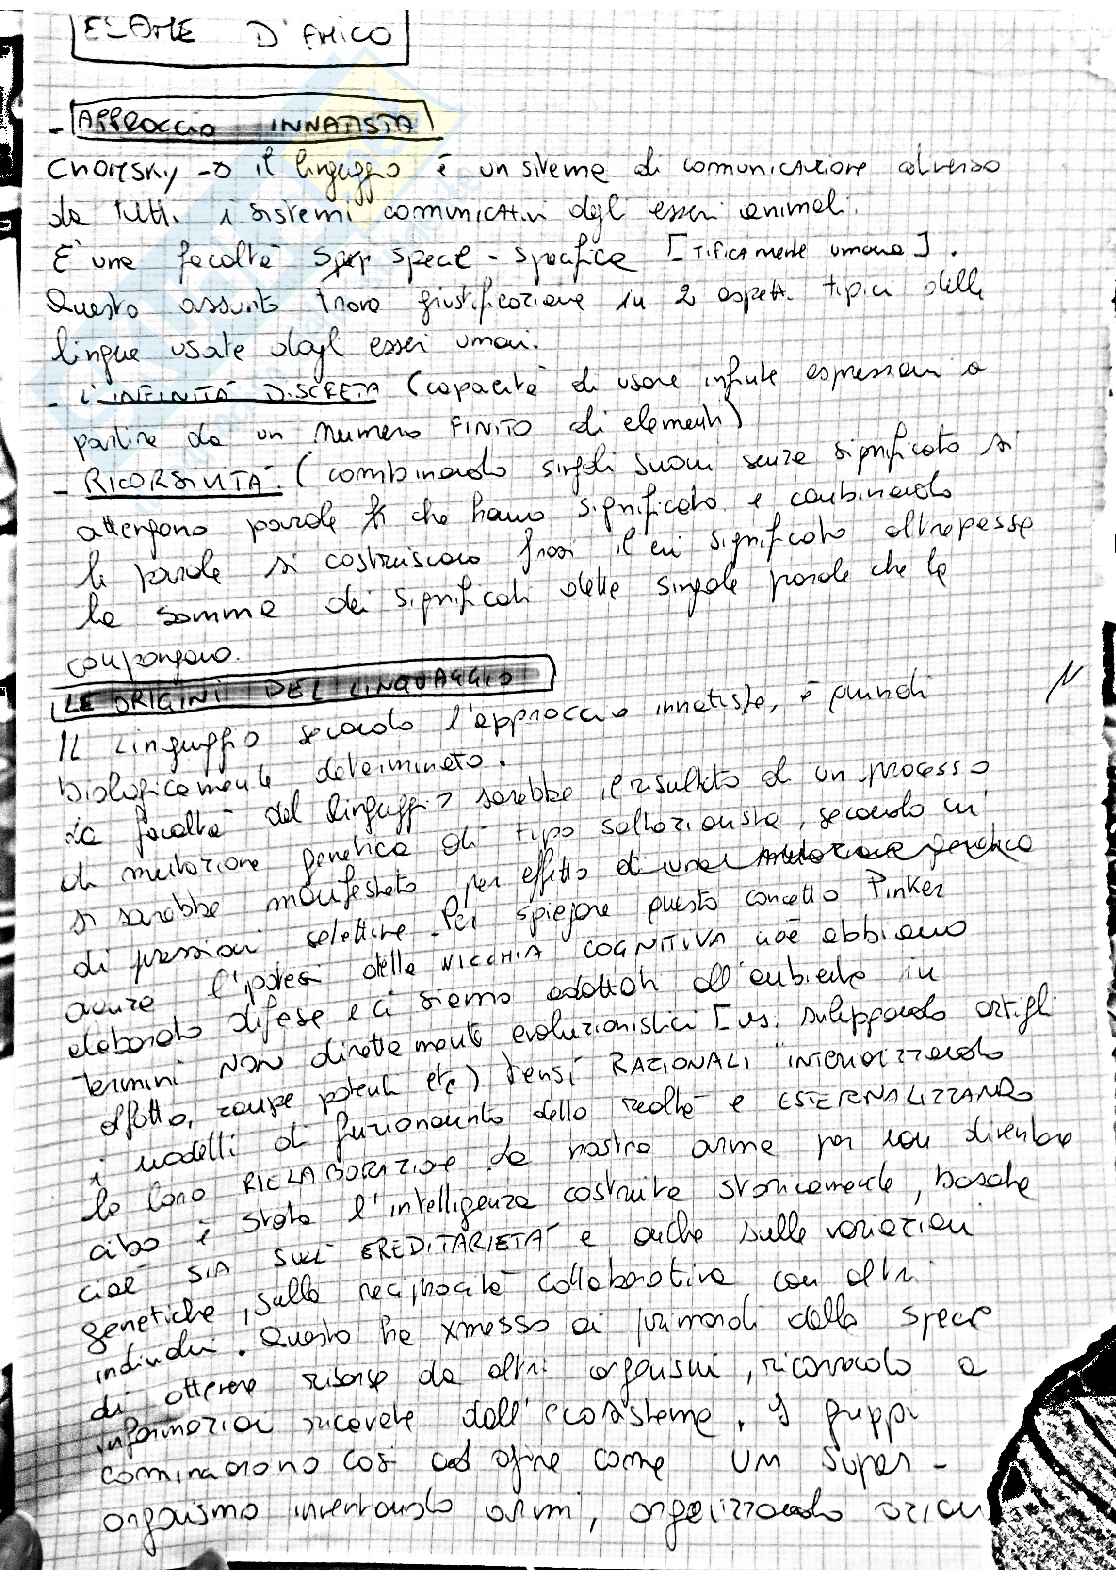 ESAME D'AMICO
- APPROCCIO INNATISTA
CHOMSKY → il linguaggio è un sistema di comunicazione diverso
da tutti i sistemi comunicativi degl esseri animali.
E' una facoltà spe specie - specifica [TIPICAMENTE umana].
Questo assunto trova giustificazione in 2 aspetti tipici delle
lingue usate dagl esseri umani.
- L'INFINITÀ DISCRETA (capacità di usare infinite espressioni a
partire da un numero FINITO di elementi)
- RICORSIVITÀ: (combinando singoli suoni senza significato si
ottengono parole che hanno significato e combinando
le parole si costruiscono frasi il cui significato oltrepassa
la somma dei significati delle singole parole che le
compongono.
LE ORIGINI DEL LINGUAGGIO
IL Linguaggio secondo l'approccio innatista, è quindi
biologicamente determinato.
La facoltà del linguaggio sarebbe il risultato di un processo
di mutazione genetica di tipo saltazionista, secondo cui
si sarebbe manifestata per effetto di una mutazione genetica
di pressioni selettive. Per spiegare questo concetto Pinker
avanza l'ipotesi della NICCHIA COGNITIVA cioè abbiamo
elaborato difese e ci siamo adattati all'ambiente in
termini NON direttamente evoluzionistici [es. sviluppando artigli
olfatto, zampe potenti etc) bensì RAZIONALI INTERIORIZZANDO
i modelli di funzionamento della realtà e ESTERNALIZZANDO
la loro RIELABORAZIONE. La nostra arma per non diventare
cibo è stata l'intelligenza costruita storicamente, basata
cioè SIA SULL'EREDITARIETÀ e anche sulle variazioni
genetiche, sulla reciprocità collaborativa con altri
individui. Questo ha xmesso ai primordi della specie
di ottenere risorse da altri organismi, ricorrendo a
informazioni ricevute dall'ecosistema. I gruppi
cominciarono così ad agire come un super -
organismo inventando armi, organizzando azioni